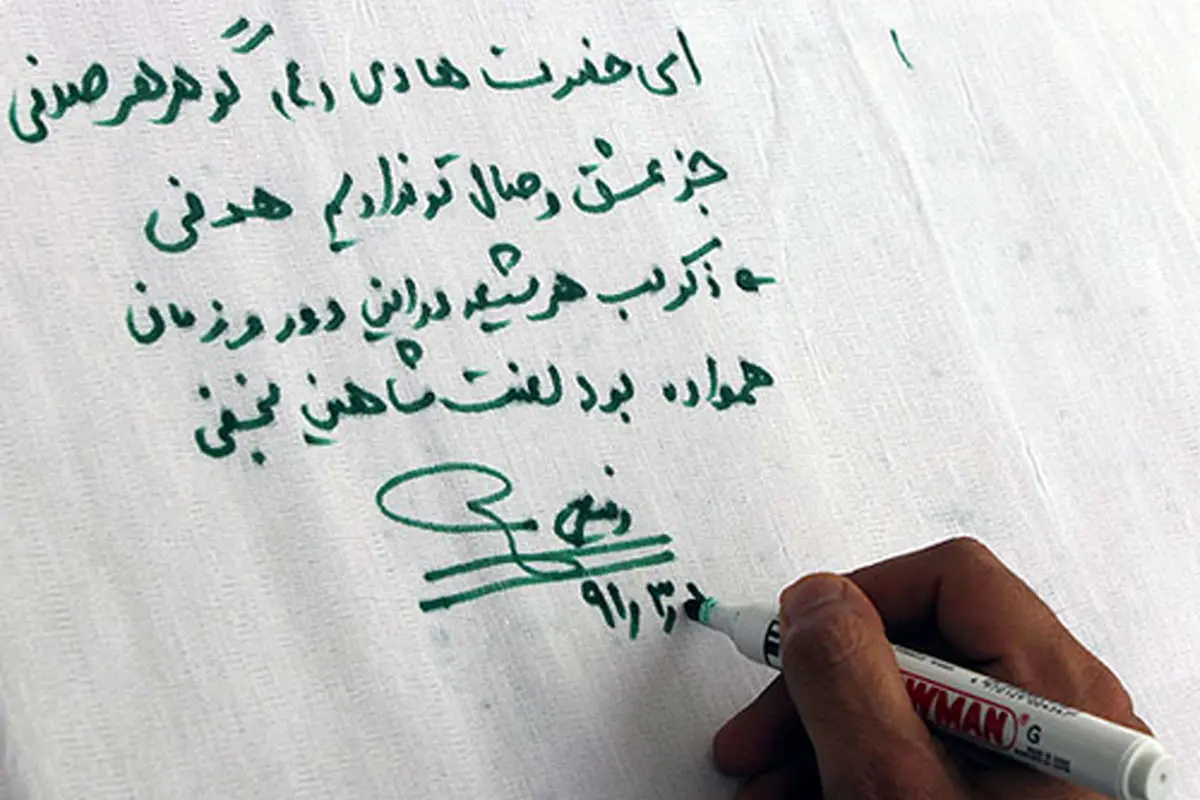 ای حضرت هادی (ع) گوهر هر صدفی
جز عشق وصال تو نداریم هدفی
ذکر لب هر شیعه در این دور و زمان
همواره بود لعنت شاهین نجفی
۹۱٫۳٫
WMAN® G